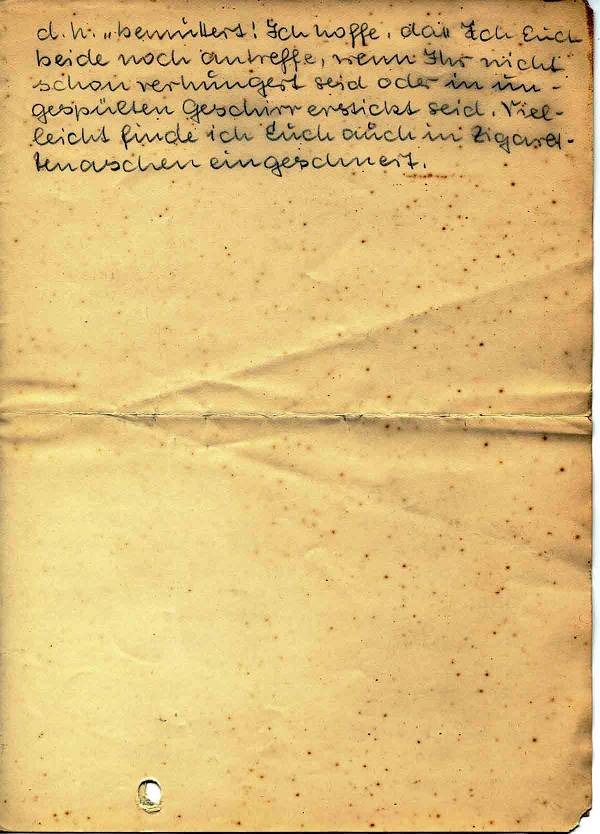 d. h. „bemuttert! Ich hoffe, daß Ich Euch
beide noch antreffe, wenn Ihr nicht
schon verhungert seid oder in un-
gespülten Geschirr erstickt seid. Viel-
leicht finde ich Euch auch in Zigaret-
tenaschen eingeschneit.